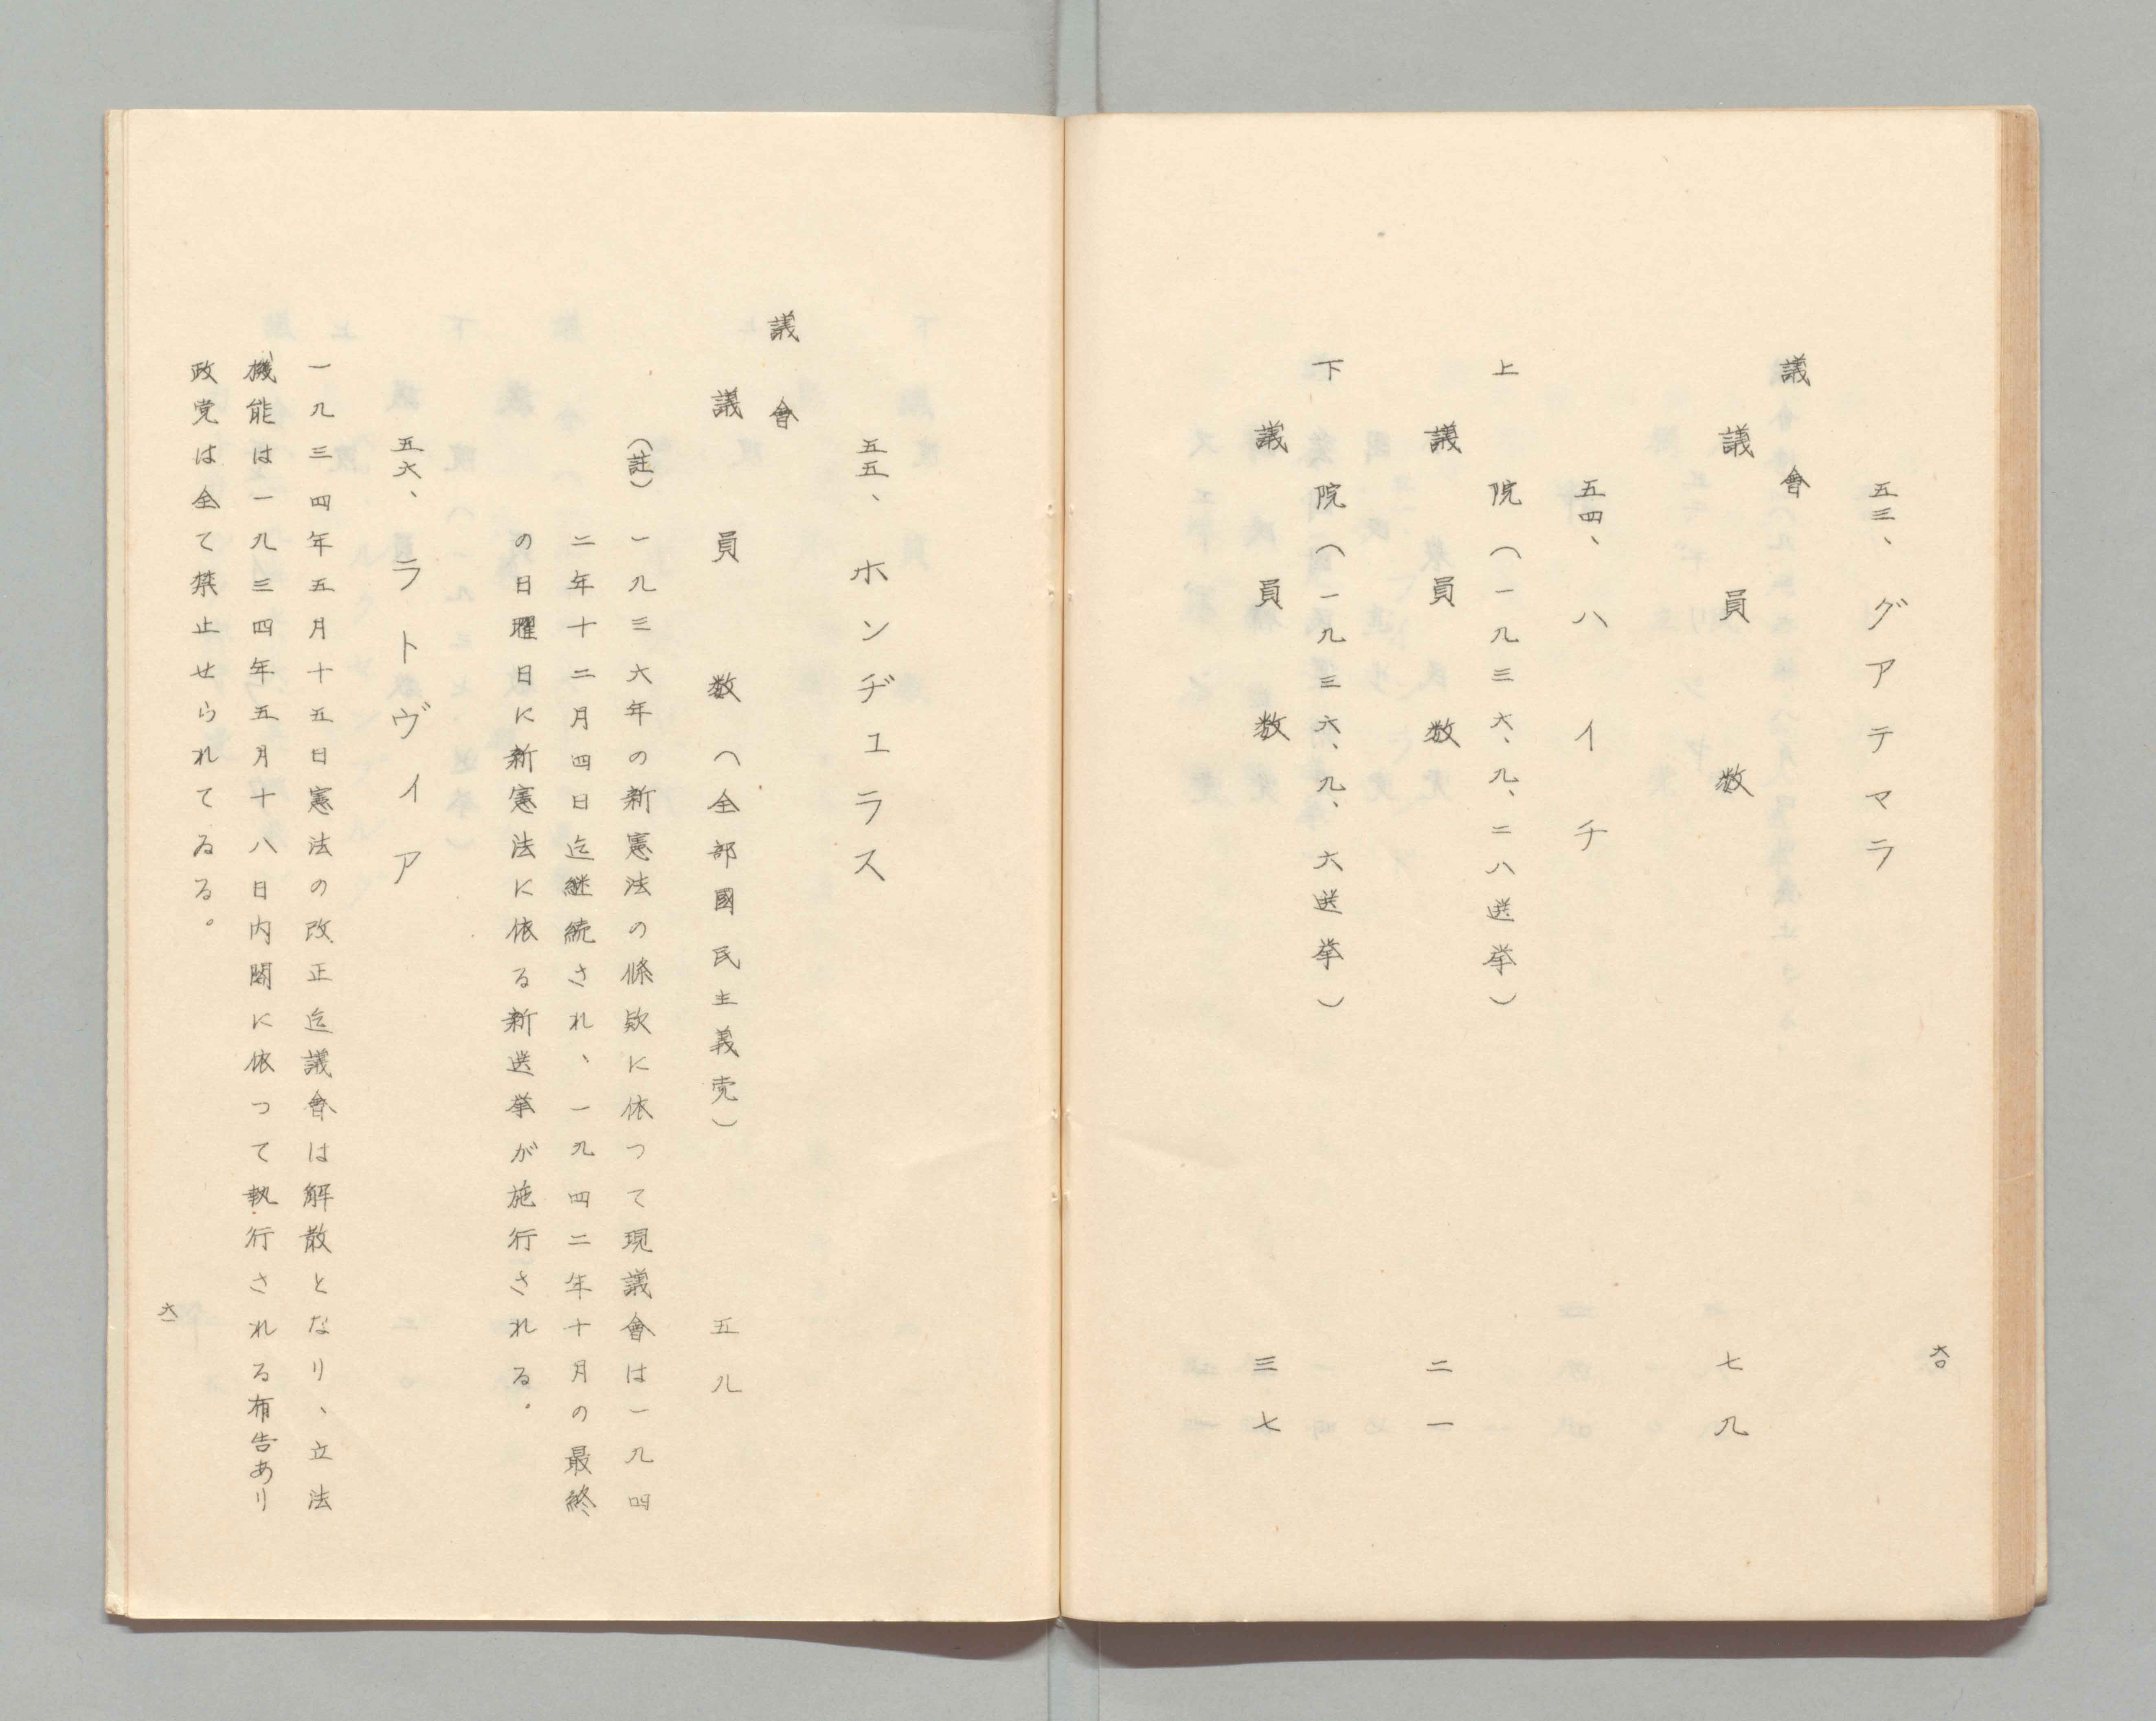 六〇
五三、グアテマラ
議會
議員数 七九
五四、ハイチ
上院(一九三六、九、二八選挙)
議員数 二一
下院(一九三六、九、六選挙)
議員数 三七
五五、ホンヂュラス
議會
議員数(全部國民主義党) 五九
(註)一九三六年の新憲法の條欵に依つて現議會は一九四
二年十二月四日迄継続され、一九四二年十月の最終
の日曜日に新憲法に依る新選挙が施行される。
五六、ラトヴィア
一九三四年五月十五日憲法の改正迄議會は解散となり、立法
機能は一九三四年五月十八日内閣に依つて執行される布告あり
政党は全て禁止せられてゐる。
六一